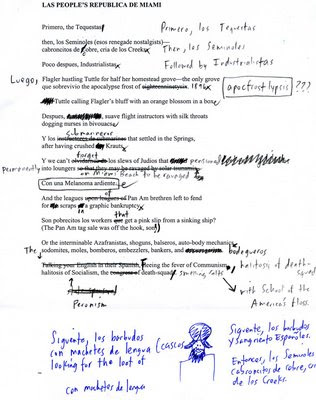 LAS PEOPLE'S REPUBLICA DE MIAMI
Primero, los Tequestas
Primero, los Tequestas
then, los Seminoles (esos renegade nostalgists)—
Then, los Seminoles
cabroncitos de cobre, eria de los Creeks
Followed by Industrialists
Poco despues, Industrialistas
Luego,
Flagler hustling Tuttle for half her homestead grove—the only grove
que sobrevivio the apocalypse frost of
apocfrost lypsis ???
Tuttle calling Flagler's bluff with an orange blossom in a bone
Despues, suave flight instructors with silk throats
dogging nurses in bivouacs
submariners
Y los instructores de submarinos that settled in the Springs,
after having crushed Krauts
forget
Y we can't of the slews of Judios that pensioned
permanently into loungers so that they may be ravaged by solar
on Miami Beach to be ravaged
Con una Melanoma ardiente
of
And the leagues upon leagues of Pan Am brethren left to fend
for scraps a graphic bankruptcy
that
Son pobrecitos los workers que get a pink slip from a sinking ship?
(The Pan Am tag sale was off the hook, son)
Or the interminable Azafranistas, shoguns, balseros, auto-body mechanics,
sodomites, moles, bomberos, embezzlers, bankers, and bodegueros
The
Talking your English in their Spanish, Fleeing the fever of Communism,
halitosis of death-squad
halitosis of Socialism, the congress of death-squad smelling salts
Peronism
with School of the
America's floss.
Siguente, los barbudos
con machetes de lengua
looking for the loot of
con machetes de lengua
(cascos
Siguente, los barbudos
y sangriento Españoles.
Entonces, los Seminoles
cabroncitos de cobre,
de los Creeks.